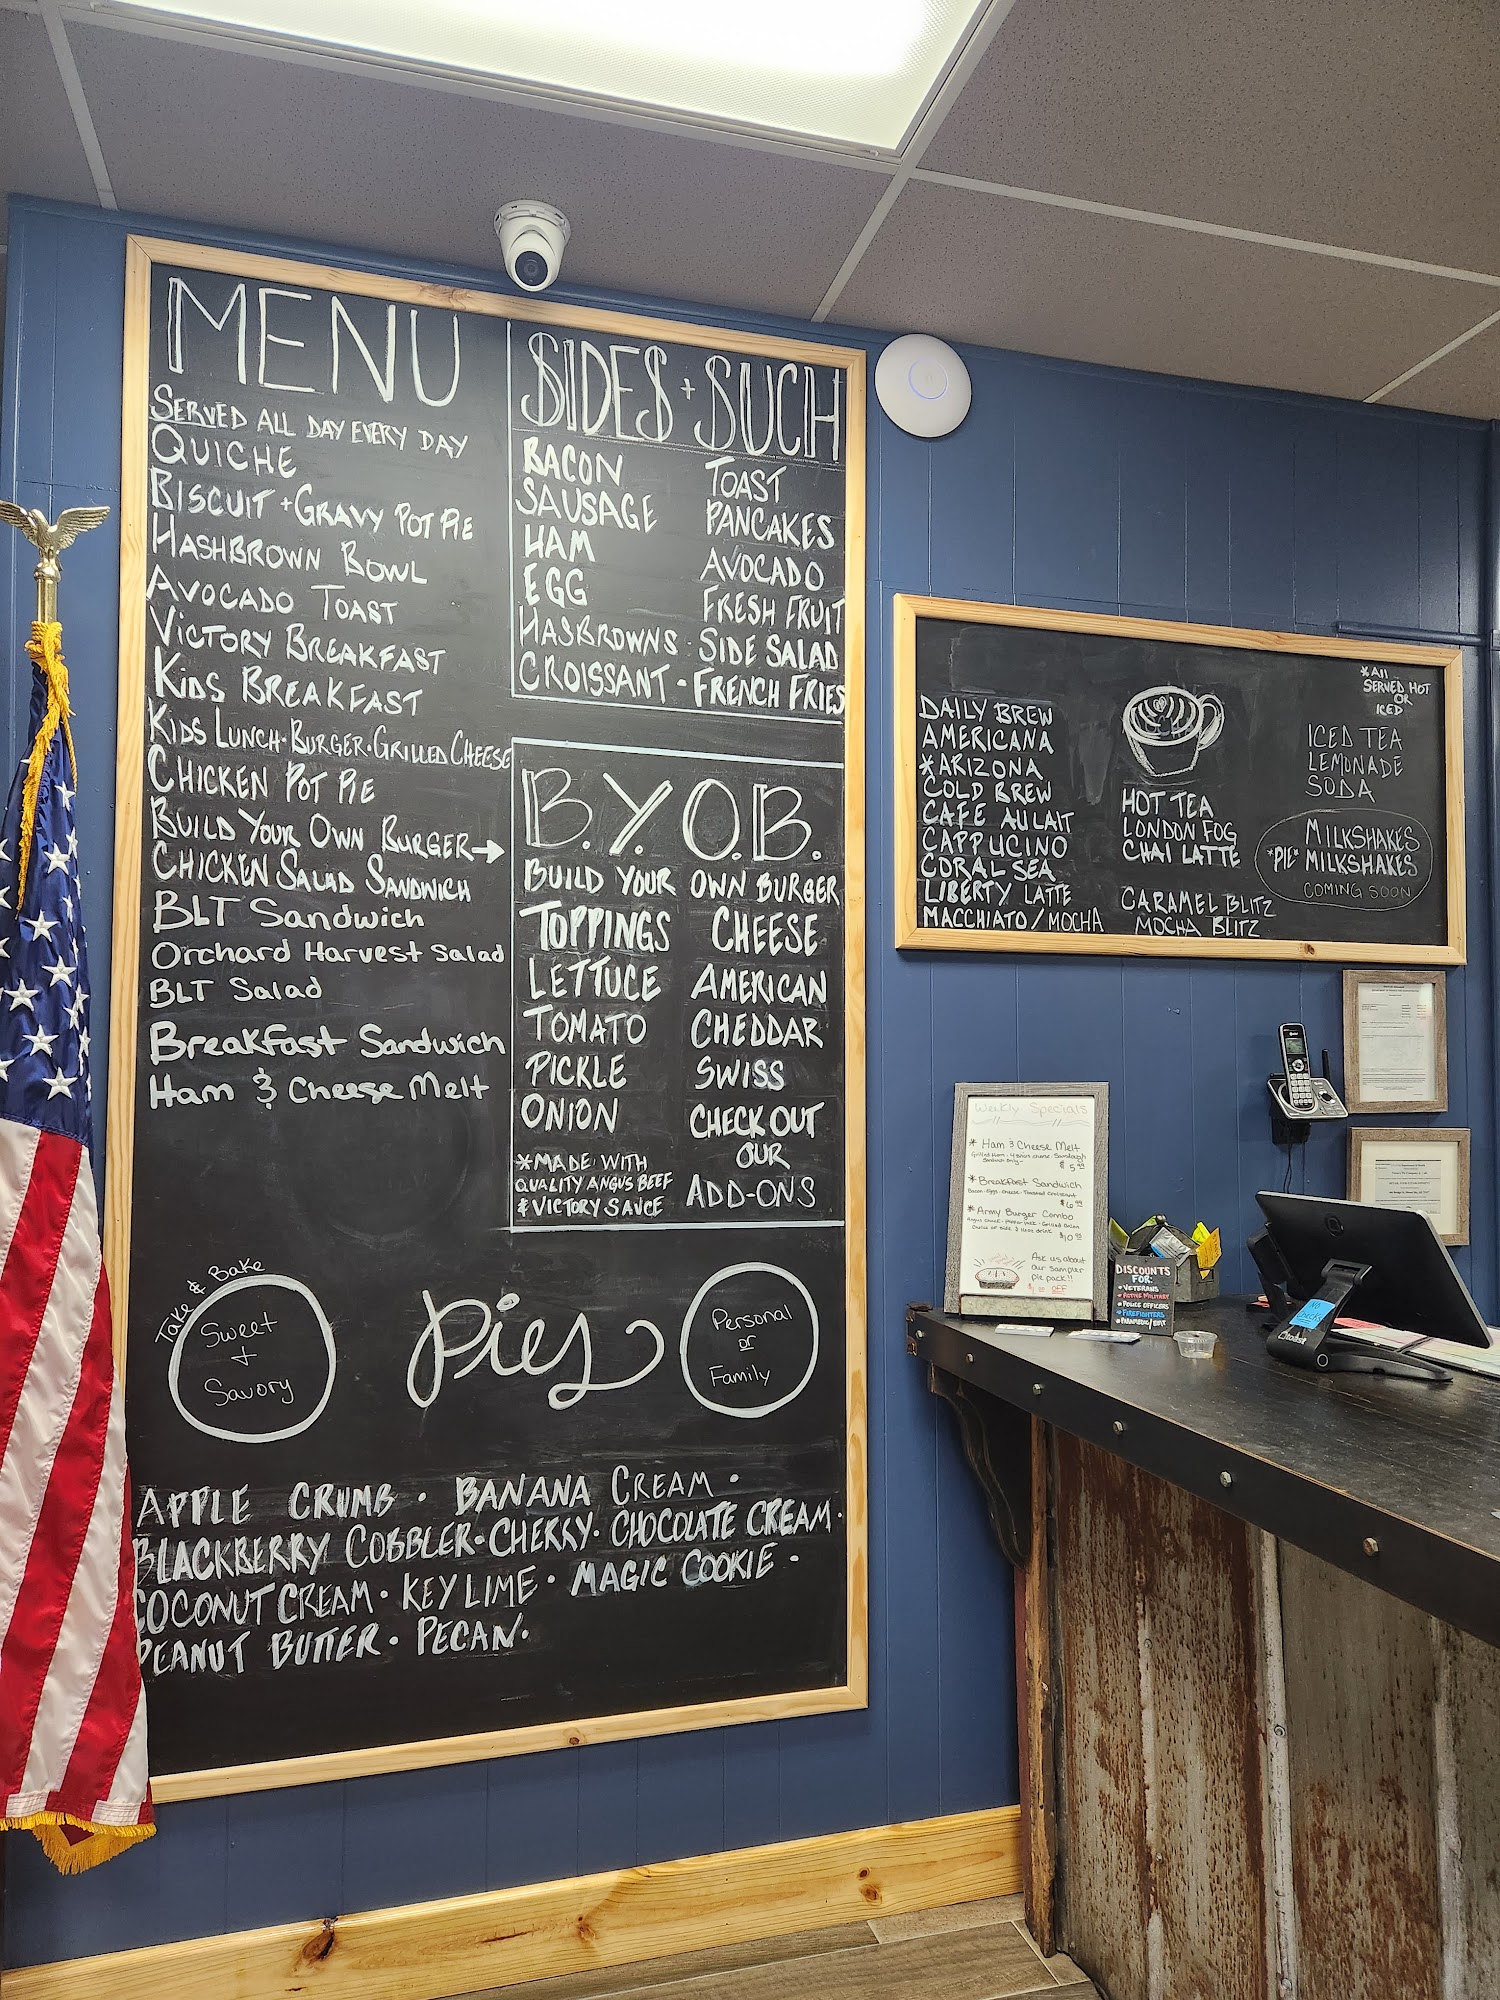 MENU
SERVED ALL DAY EVERY DAY
QUICHE
BISCUIT + GRAVY POT PIE
HASHBROWN BOWL
AVOCADO TOAST
VICTORY BREAKFAST
KIDS BREAKFAST
KIDS LUNCH · BURGER · GRILLED CHEESE
CHICKEN POT PIE
BUILD YOUR OWN BURGER →
CHICKEN SALAD SANDWICH
BLT Sandwich
Orchard Harvest Salad
BLT Salad
Breakfast Sandwich
Ham & Cheese Melt
SIDES + SUCH
BACON
SAUSAGE
HAM
EGG
HASBROWNS
CROISSANT
TOAST
PANCAKES
AVOCADO
FRESH FRUIT
· SIDE SALAD
· FRENCH FRIES
B.Y.O.B.
BUILD YOUR OWN BURGER
TOPPINGS
LETTUCE
TOMATO
PICKLE
ONION
*MADE WITH
QUALITY ANGUS BEEF
& VICTORY SAUCE
CHEESE
AMERICAN
CHEDDAR
SWISS
CHECK OUT
OUR
ADD-ONS
Take & Bake
Sweet
+
Savory
Pies
Personal
or
Family
APPLE CRUMB · BANANA CREAM ·
BLACKBERRY COBBLER · CHERRY · CHOCOLATE CREAM ·
COCONUT CREAM · KEY LIME · MAGIC COOKIE ·
PEANUT BUTTER · PECAN ·
DAILY BREW
AMERICANA
*ARIZONA
COLD BREW
CAFE AU LAIT
CAPPUCINO
CORAL SEA
LIBERTY LATTE
MACCHIATO/MOCHA
HOT TEA
LONDON FOG
CHAI LATTE
CARAMEL BLITZ
MOCHA BLITZ
*All
SERVED HOT
OR
ICED
ICED TEA
LEMONADE
SODA
MILKSHAKES
*PIE* MILKSHAKES
COMING SOON
Weekly Specials
* Ham & Cheese Melt
Sandwich only
$5.99
* Breakfast Sandwich
Bacon · Eggs · Cheese · Toasted Croissant
$6.99
* Army Burger Combo
Ask us about
our sampler
pie pack!!
OFF
DISCOUNTS
FOR:
* VETERANS
* ACTIVE MILITARY
* POLICE OFFICERS
* FIREFIGHTERS
* PARAMEDIC/EMT